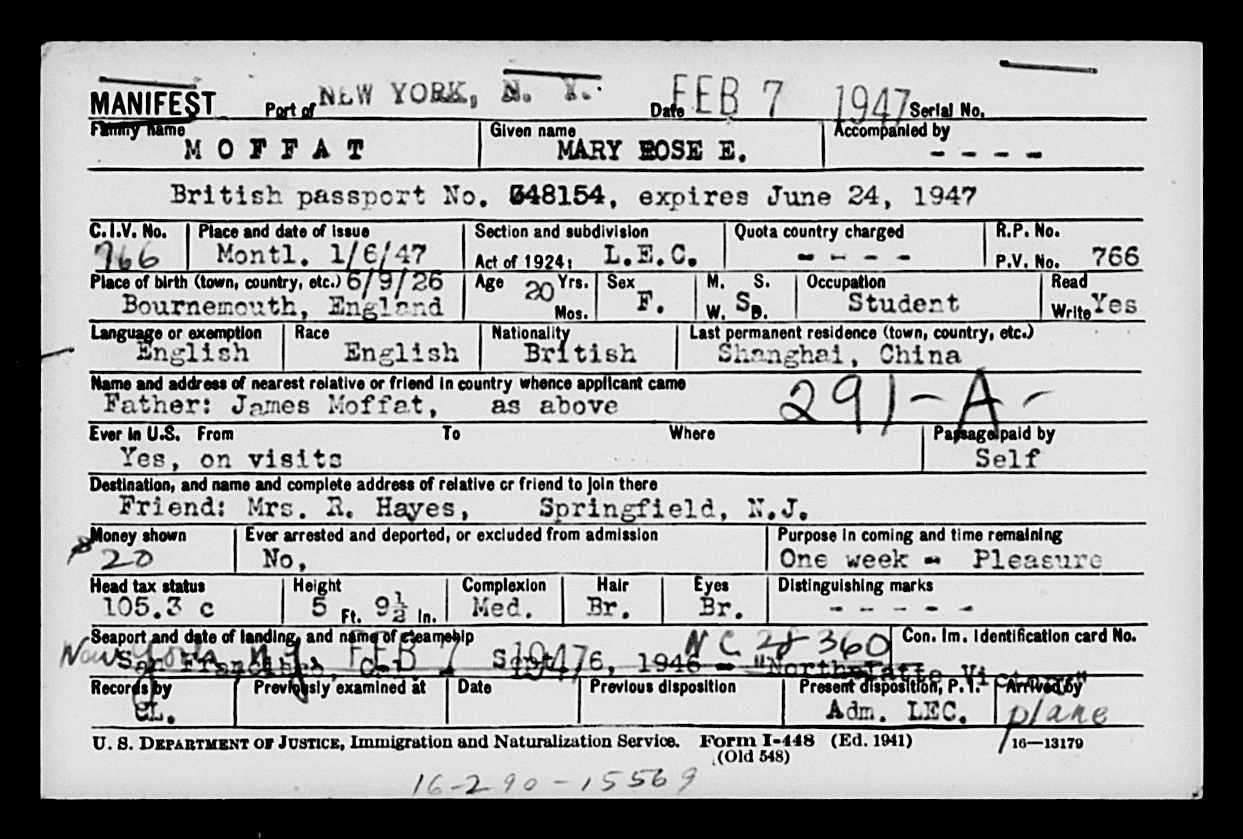 MANIFEST Port of NEW YORK, N. Y. Date FEB 7 1947 Serial No.
Family name Given name Accompanied by
MOFFAT MARY ROSE E. - - - -
British passport No. 348154, expires June 24, 1947
C.I.V. No. Place and date of issue Section and subdivision Quota country charged R.P. No.
766 Montl. 1/6/47 Act of 1924: L.E.C. - - - - P.V. No. 766
Place of birth (town, country, etc.) 6/9/26 Age 20 Yrs. Sex M. S. Occupation Read
Bournemouth, England Mos. F. W. S D. Student Write Yes
Language or exemption Race Nationality Last permanent residence (town, country, etc.)
English English British Shanghai, China
Name and address of nearest relative or friend in country whence applicant came
Father: James Moffat, as above 291-A-
Ever in U.S. From To Where Passage paid by
Yes, on visits Self
Destination, and name and complete address of relative or friend to join there
Friend: Mrs. R. Hayes, Springfield, N.J.
Money shown Ever arrested and deported, or excluded from admission Purpose in coming and time remaining
$20 No, One week - Pleasure
Head tax status Height Complexion Hair Eyes Distinguishing marks
105.3 c 5 Ft. 9½ In. Med. Br. Br. - - - - -
Seaport and date of landing, and name of steamship NC 28360 Con. Im. Identification card No.
New York N.Y. FEB 7 1947
San Francisco, Cal. Sept. 6, 1946 - "North Platte Victory"
Records by Previously examined at Date Previous disposition Present disposition, P.I. Arrived by
CL. Adm. LEC. plane
U. S. DEPARTMENT OF JUSTICE, Immigration and Naturalization Service. Form I-448 (Ed. 1941) 16—13179
(Old 548)
16-290-15569